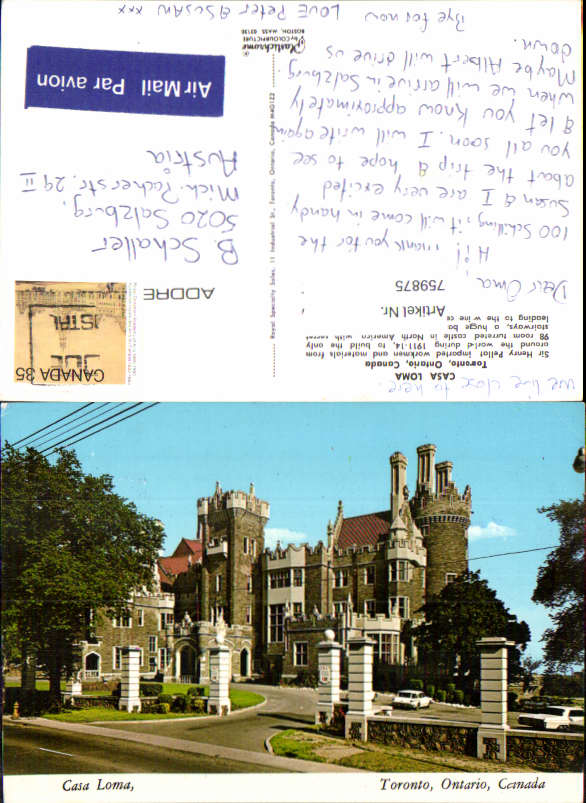 we live close to here.
CASA LOMA
Toronto, Ontario, Canada
Sir Henry Pellat imported workmen and materials from
around the world during 1911-'14, to build the only
98 room turreted castle in North America with secret
stairways, a huge bo
leading to the wine ce
Artikel Nr.
759875
Dear Oma,
Hi! Thank you for the
100 Schilling, it will come in handy
Susan & I are very excited
about the trip & hope to see
you all soon. I will write again
& let you know approximately
when we will arrive in Salzburg.
Maybe Albert will drive us
down.
Bye for now
LOVE Peter & SUSAN xxx
Royal Specialty Sales, 11 Industrial St., Toronto, Ontario, Canada M4G1Z2
Plastichrome
by COLOURPICTURE
BOSTON, MASS 02130
CANADA 35
POSTAL
ADDRE
B. Schaller
5020 Salzburg,
Mich. Pacherstr. 29 II
Austria
Air Mail Par avion
Casa Loma,
Toronto, Ontario, Canada